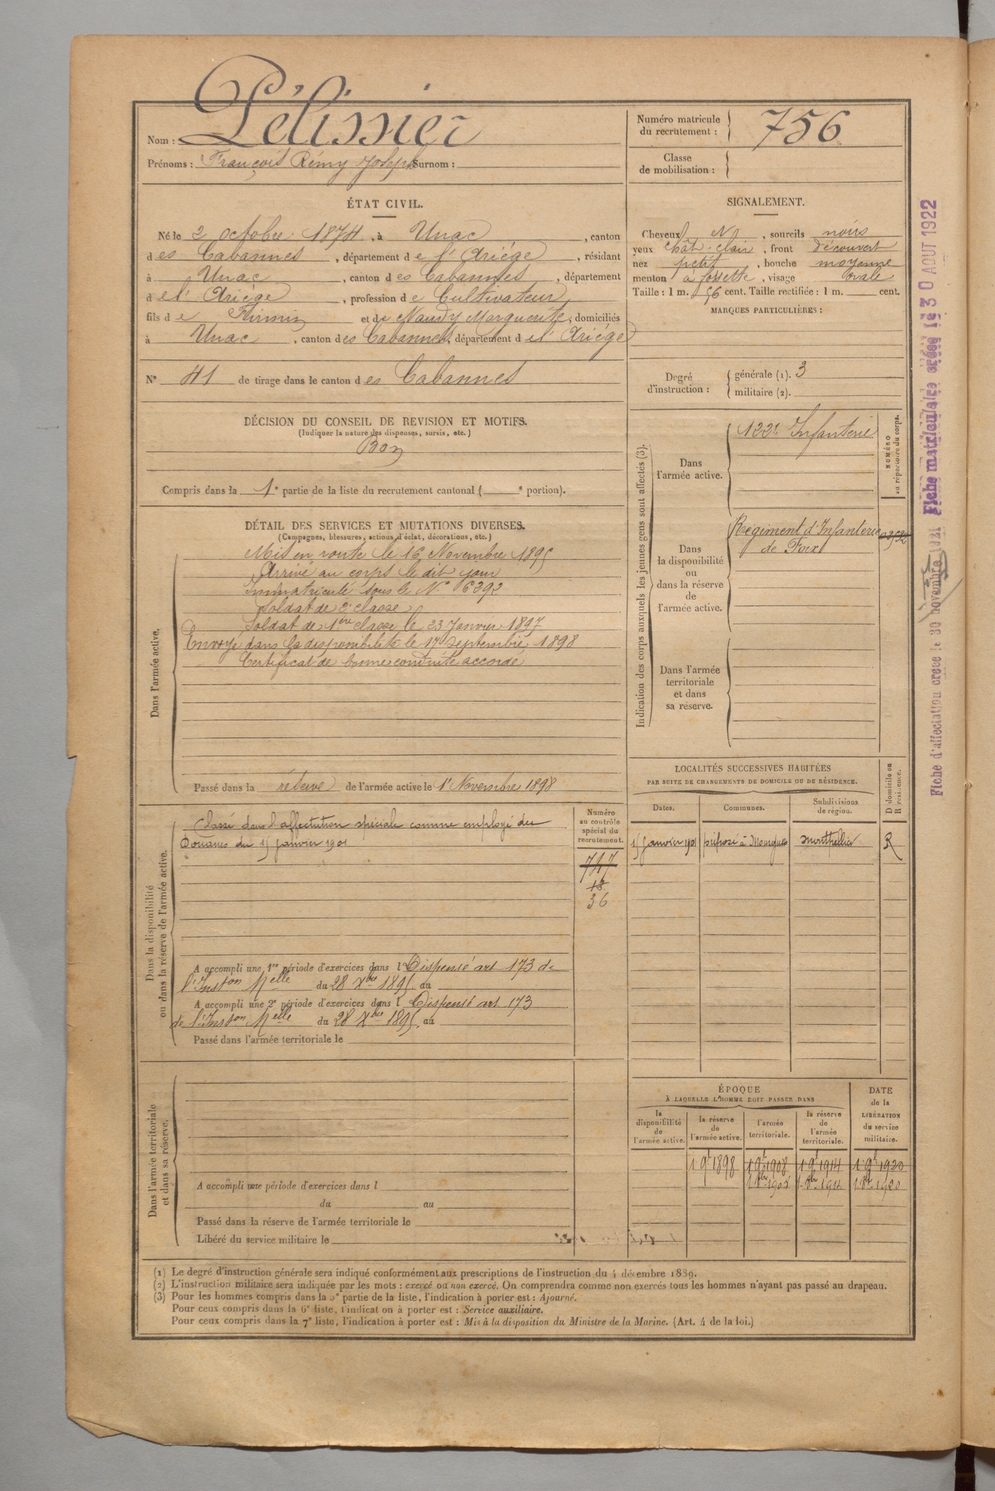 Nom : Pélissier
Prénoms : François Rémy Joseph Surnom :
Numéro matricule du recrutement : 756
Classe de mobilisation :
ÉTAT CIVIL.
Né le 2 octobre 1874, à Unac, canton
des Cabannes, département de l'Ariége, résidant
à Unac, canton des Cabannes, département
de l'Ariége, profession de Cultivateur
fils de Firmin et de Naudy Marguerite, domiciliés
à Unac, canton des Cabannes, département de l'Ariége
N° 41 de tirage dans le canton des Cabannes
SIGNALEMENT.
Cheveux N, sourcils noirs
yeux chât-clair, front découvert
nez petit, bouche moyenne
menton à fossette, visage ovale
Taille : 1 m. 56 cent. Taille rectifiée : 1 m. cent.
MARQUES PARTICULIÈRES :
Degré d'instruction : générale (1). 3
militaire (2).
DÉCISION DU CONSEIL DE REVISION ET MOTIFS.
(Indiquer la nature des dispenses, sursis, etc.)
Bon
Compris dans la 1e partie de la liste du recrutement cantonal ( e portion).
DÉTAIL DES SERVICES ET MUTATIONS DIVERSES.
(Campagnes, blessures, actions d'éclat, décorations, etc.)
Dans l'armée active.
Mis en route le 16 Novembre 1895
Arrivé au corps le dit jour
Immatriculé sous le N° 6392
Soldat de 2e classe
Soldat de 1ère classe le 23 Janvier 1897
Envoyé dans la disponibilité le 17 Septembre 1898
Certificat de bonne conduite accordé
Passé dans la réserve de l'armée active le 1er Novembre 1898
Indication des corps auxquels les jeunes gens sont affectés (3).
NUMÉRO au répertoire du corps.
Dans l'armée active.
122e Infanterie
Dans la disponibilité ou dans la réserve de l'armée active.
Régiment d'Infanterie
de Foix
Dans l'armée territoriale et dans sa réserve.
LOCALITÉS SUCCESSIVES HABITÉES
PAR SUITE DE CHANGEMENTS DE DOMICILE OU DE RÉSIDENCE.
Dates. Communes. Subdivisions de région. D domicile ou R résidence.
15 Janvier 1901 préposé à Mauguio Montpellier R
Dans la disponibilité ou dans la réserve de l'armée active.
Classé dans l'affectation spéciale comme employé des
Douanes du 15 janvier 1901
Numéro au contrôle spécial du recrutement.
747
18
36
A accompli une 1re période d'exercices dans l Dispensé art 173 de
l'Inston Melle du 28 Xbre 1895 au
A accompli une 2e période d'exercices dans l Dispensé art 173
de l'Inston Melle du 28 Xbre 1895 au
Passé dans l'armée territoriale le
Dans l'armée territoriale et dans sa réserve.
A accompli une période d'exercices dans l
du au
Passé dans la réserve de l'armée territoriale le
Libéré du service militaire le
ÉPOQUE
À LAQUELLE L'HOMME DOIT PASSER DANS
la disponibilité de l'armée active. la réserve de l'armée active. l'armée territoriale. la réserve de l'armée territoriale.
DATE de la LIBÉRATION du service militaire.
1 9e 1898 1 9e 1908 1 9e 1914 1 9e 1920
(1) Le degré d'instruction générale sera indiqué conformément aux prescriptions de l'instruction du 4 décembre 1889.
(2) L'instruction militaire sera indiquée par les mots : exercé ou non exercé. On comprendra comme non exercés tous les hommes n'ayant pas passé au drapeau.
(3) Pour les hommes compris dans la 5e partie de la liste, l'indication à porter est : Ajourné.
Pour ceux compris dans la 6e liste, l'indication à porter est : Service auxiliaire.
Pour ceux compris dans la 7e liste, l'indication à porter est : Mis à la disposition du Ministre de la Marine. (Art. 4 de la loi.)
Fiche d'affectation créée le 30 novembre 1921
Fiche matriculaire créée le 30 AOUT 1922